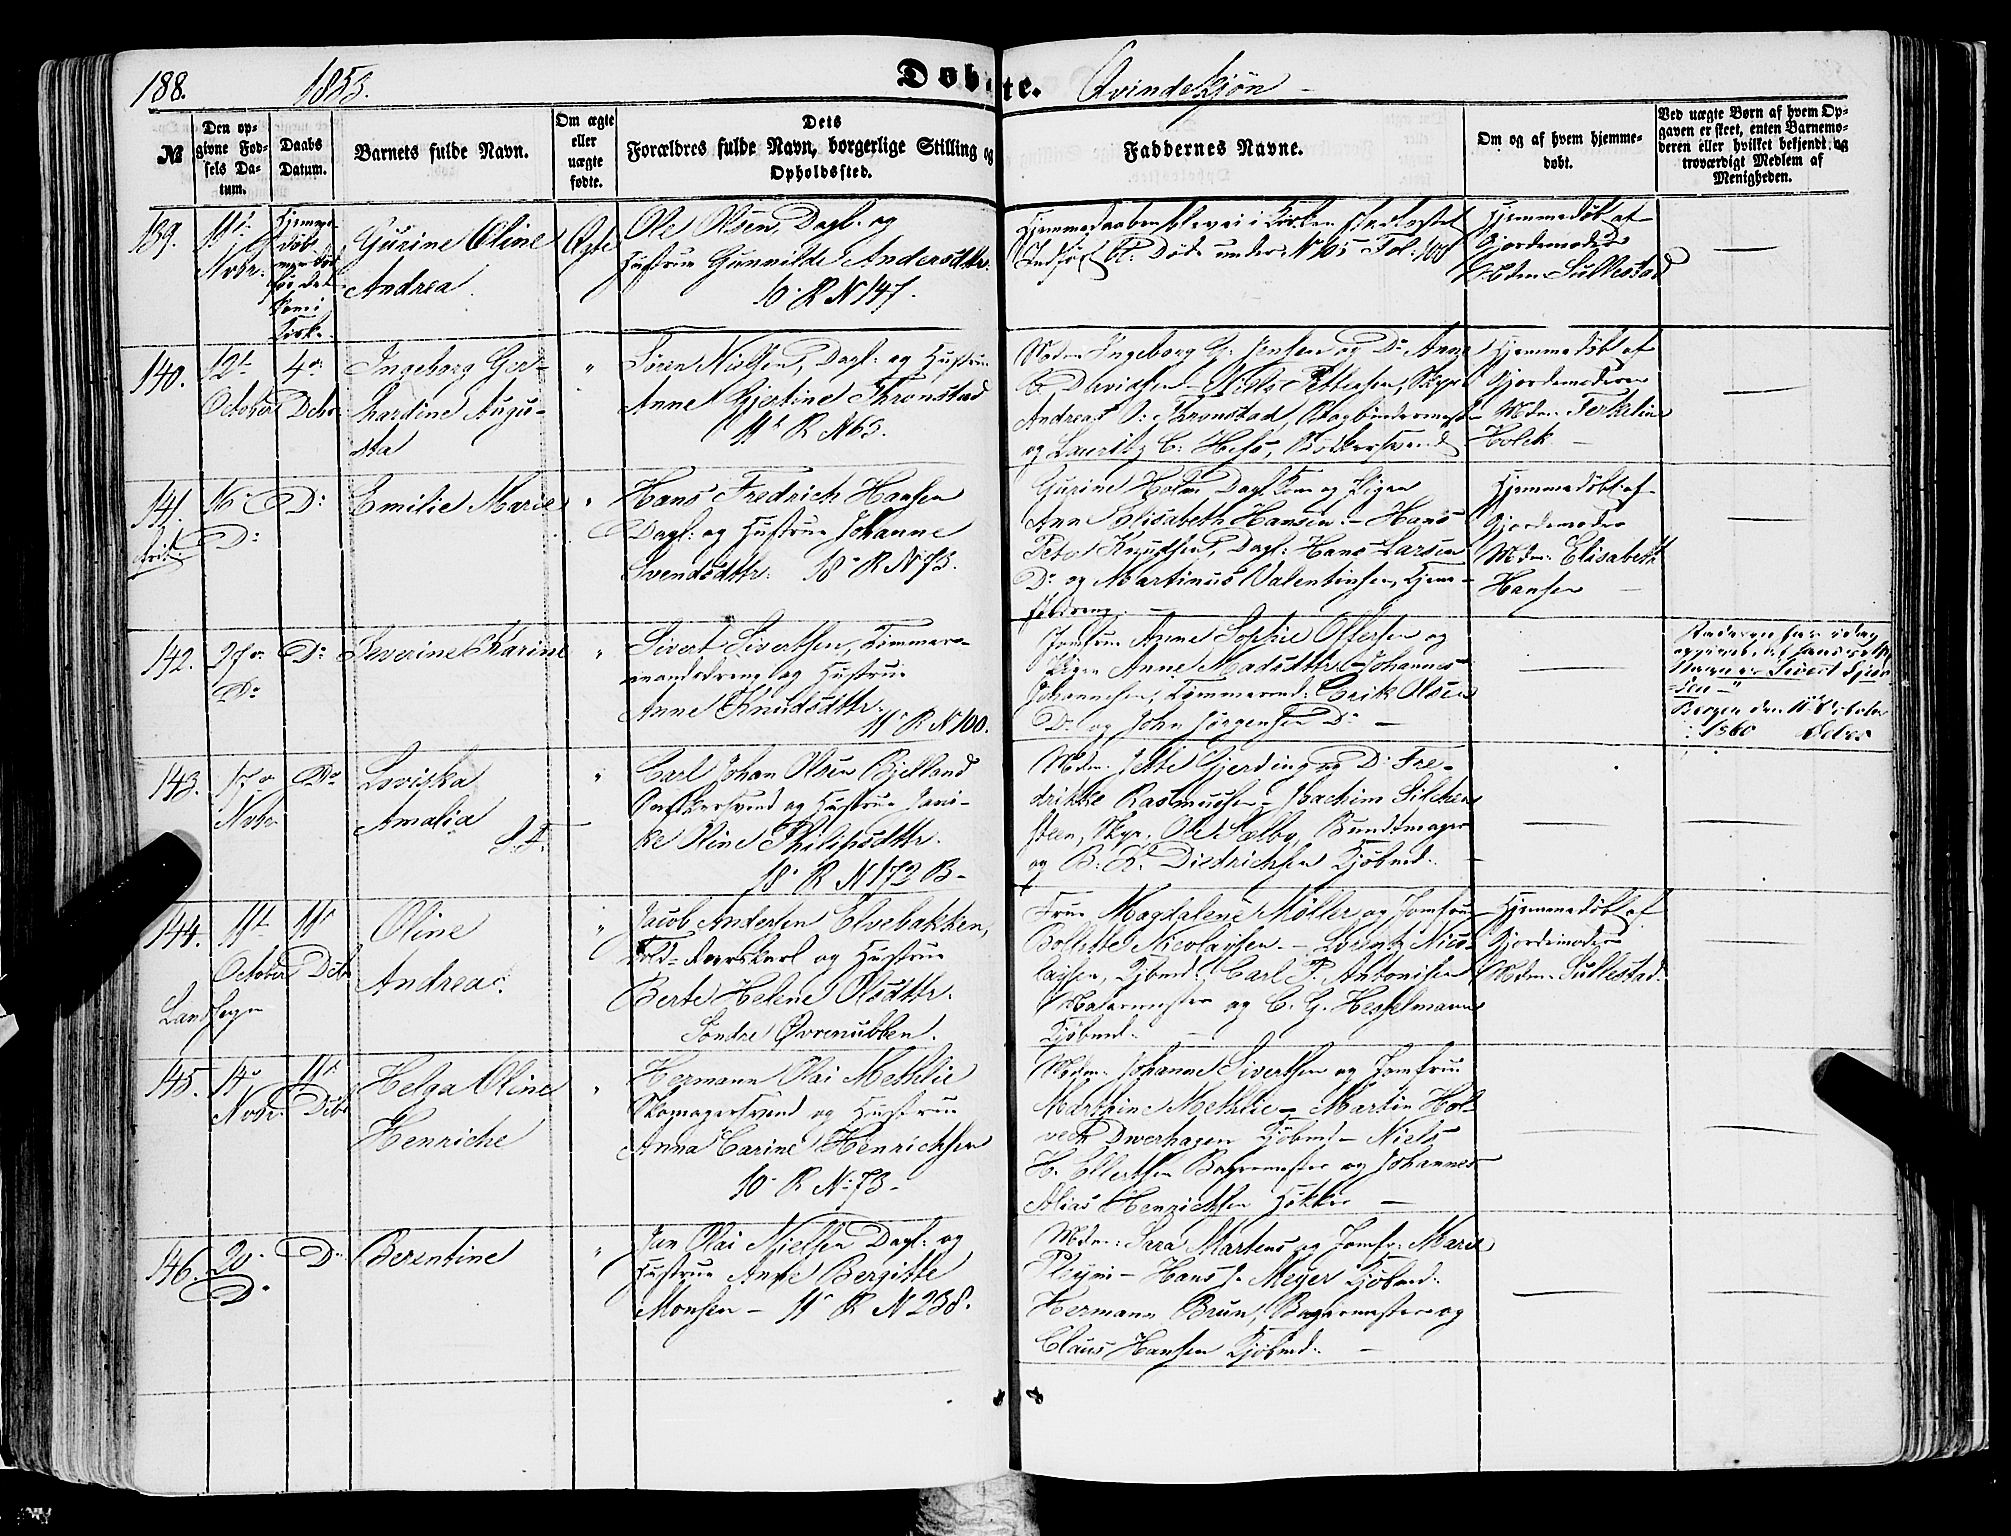 188.
1853.
Døbte.
Qvindekjøn
№
Den op-
givne Fød-
sels Da-
tum.
Daabs
Datum.
Barnets fulde Navn.
Om ægte
eller
uægte
fødte.
Dets
Forældres fulde Navn, borgerlige Stilling og
Opholdssted.
Faddernes Navne.
Om og af hvem hjemme-
døbt.
Ved uægte Børn af hvem Op-
gaven er skeet, enten Barnemo-
deren eller hvilket bekjendt og
troværdigt Medlem af
Menigheden.
139.
11te
Novbr.
Hjemme-
døbt
før det
kom i
Kirke
Gurine Oline
Andrea
Ægte
Ole Olsen, Dagl. og
Hustrue Gunnilde Andersdttr.
10 R N 147.
Hjemmedaaben blev ei i Kirken
Døde under N 105 Fol. 188
Hjemmedøbt af
Gjordemoder
Mdm. Sullestad
140.
12te
October
4de
Decbr
Ingeborg Ger-
hardine Augu-
sta
"
Søren Nielsen, Dagl. og Hustrue
Anne Gjertine Thronstad
11 R N 63.
Mdm Ingeborg G. Jensen og Do Anne
C. Davidsen - Niels Pettersen, Skipr
Andreas O. Thronstad, Bogbindermester
og Lauritz C. Hess, Bødkersvend
Hjemmedøbt af
Gjordemoderen
Mdm. Terkeline
Holck
141.
16
Do
Do
Emilie Marie
"
Hans Fredrich Hansen
Dagl. og Hustrue Johanne
Svendsdttr. 18 R N 73.
Gurine Holm Dagl. Kone og Pigen
Ann Elisabeth Hansen - Hans
Peter Knudsen, Dagl. Hans Larsen
Do og Martinus Valentinsen,
Hjemmedøbt af
Gjordemoder
Mdm. Elisabeth
Hansen
142.
27de
Do
Do
Severine Karine
"
Sivert Sivertsen, Tømmer-
mandsdreng og Hustrue
Anne Knudsdttr.
11 R N 100.
Jomfrue Anne Sophie Olsen og
Pigen Anne Madsdttr - Johannes
Johannesen, Tømmermd. Erik Olsen
Do og John Jørgensen Do
Faderen har idag
opgivet, at hans rette
Navn er Sivert
Bergen den 11 October
1860
143.
17de
Novbr
Do
Loviska
Amalia
"
Carl Johan Olsen Bjelland
og Hustrue Jani-
ke Oline Philipsdttr.
18 R N 172 B
Mdm. Jette Gjerding og Do Fre-
drikke Rasmussen - Joachim Silchen-
steen, Skpr. Ole Melby, Bundtmager
og B. K. Diedrichsen Kjøbmd.
144.
Landsogn
11te
October
11te
Decbr
Oline
Andrea
"
Jacob Andersen Elvebakken,
Told-Roerskarl og Hustrue
Berte Helene Olsdttr.
Søndre Øvrenubben.
Frue Magdalene Møller og Jomfrue
Bollette Nicolaysen. - Lorentz Nico-
laysen, Kjøbmd. Carl P. Antonisen
Malermester og C. G. Hesselmann
Kjøbmd.
Hjemmedøbt af
Gjordemoder
Mdm. Sullestad.
145.
14de
Novbr.
11te
Decbr
Helga Oline
Henriche
"
Hermann Olai Methlie
Skomagersvend og Hustrue
Anna Carine Henrichsen
10 R N 73
Mdm. Johanne Sivertsen og Jomfrue
Marthine Methlie - Martin Hol-
vech Dverhagen Kjøbmd - Niels
H. Ellertsen Bagermester og Johannes
Alias Henrichsen Høkker
146.
20
Do
Do
Berentine
"
Jan Olai Nielsen Dagl. og
Hustrue Anne Bergitte
Monsen - 11 R N 238.
Mdm. Sara Martens og Jomfr. Marie
Pleym - Hans J. Meyer Kjøbmd.
Hermann Brun, Bagermester og
Claus Hansen Kjøbmd.